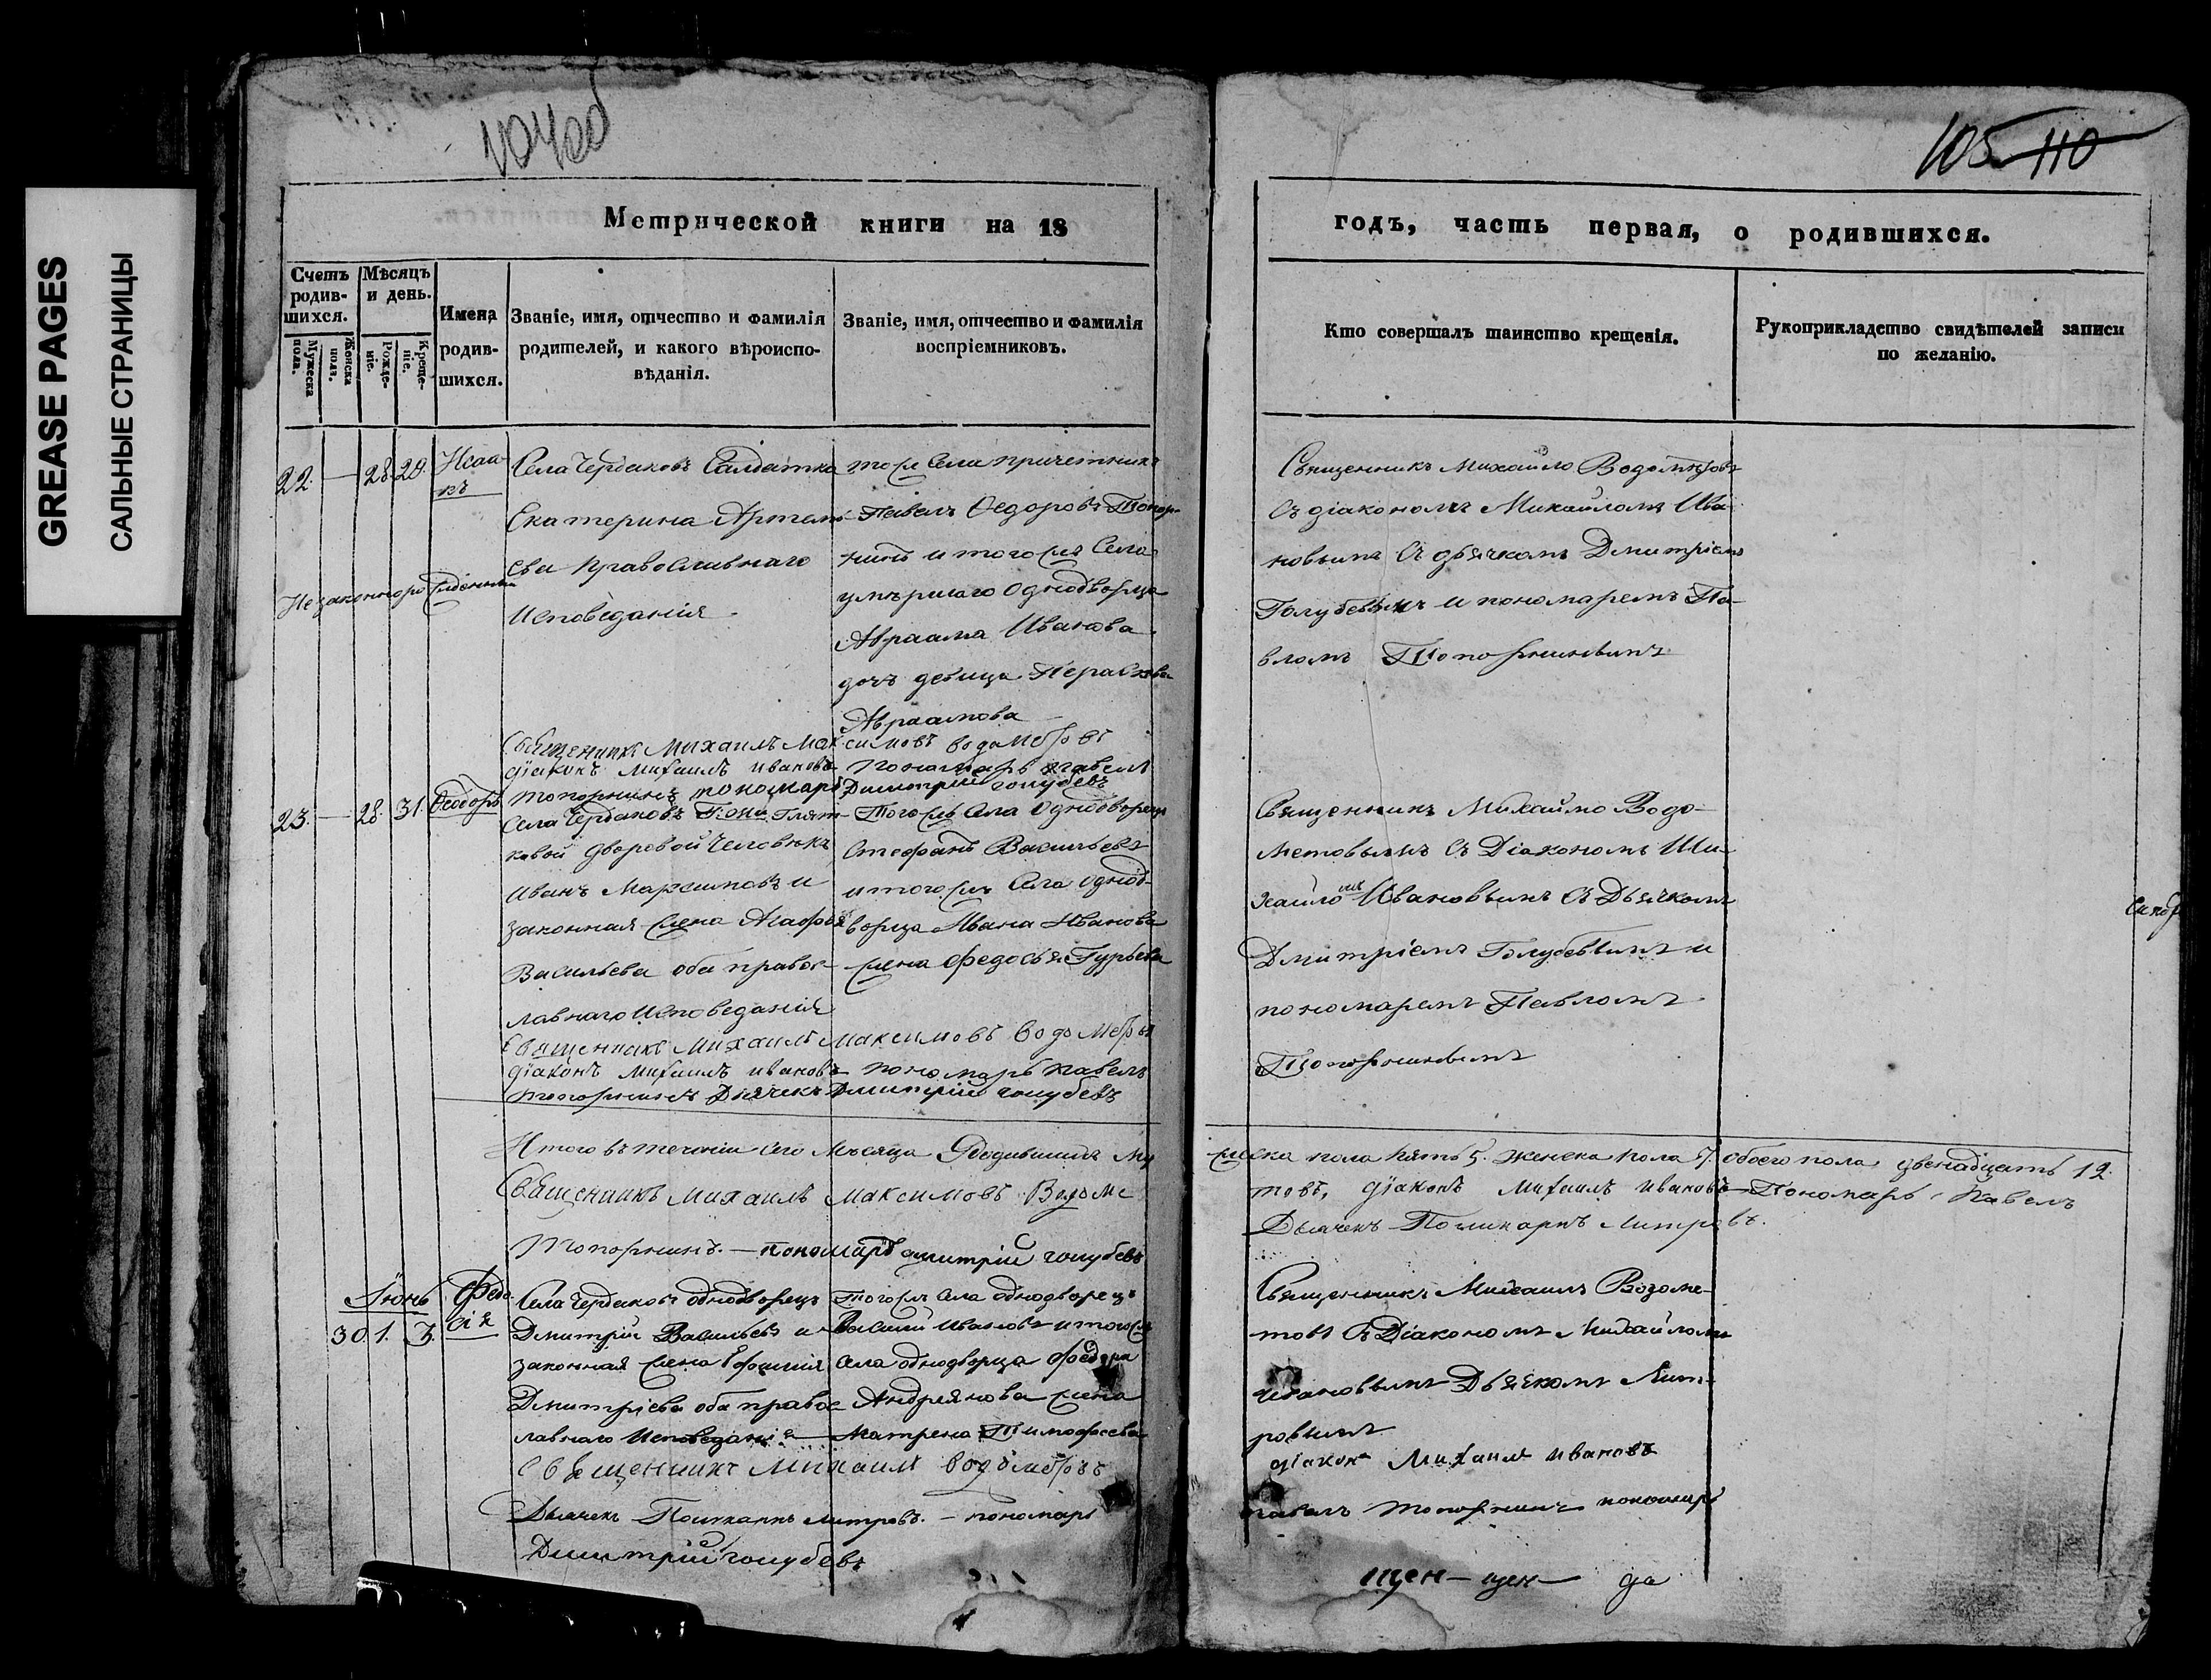 GREASE PAGES
САЛЬНЫЕ СТРАНИЦЫ
104об
105 110
Метрической книги на 18
годъ, часть первая, о родившихся.
Счетъ родив-шихся.
Мужеска пола.
Женска пола.
Мѣсяцъ и день.
Рожде-ніе.
Креще-ніе.
Имена родив-шихся.
Званіе, имя, отчество и фамилія
родителей, и какого вѣроиспо-
вѣданія.
Званіе, имя, отчество и фамилія
воспріемниковъ.
Кто совершалъ таинство крещенія.
Рукоприкладство свидѣтелей записи
по желанію.
22. — 28. 29. Исаа-
къ
Незаконнорожденный
Села Чердаковъ Салдатка
Екатерина Артемь-
ева православнаго
исповеданія
тогож Села причетникъ
Павелъ Ѳедоровъ Топор-
нинъ и тогож Села
умершаго Однодворца
Авраама Иванова
дочь девица Парасковья
Авраамова
Священникъ Михайло Водометовъ
Съ діакономъ Михайломъ Ива-
новымъ Съ дьячкомъ Дмитріемъ
Голубевымъ и пономаремъ Па-
вломъ Топорниновымъ
Священникъ Михаилъ Максимовъ Водометовъ
діаконъ Михаилъ Ивановъ пономарь Павелъ
Топорнинъ пономарь Димитрий Голубевъ
23. — 28. 31. Ѳеодоръ
Села Чердаковъ
ковой дворовой человекъ
Иванъ Максимовъ и
законная жена Агафья
Васильева оба правос-
лавнаго исповеданія
Тогожъ Села Однодворецъ
Стефанъ Васильевъ
и тогож Села однод-
ворца Ивана Иванова
жена Федосья Гурьева
Священникъ Михайло Водо-
метовымъ Съ Діакономъ Ми-
хайломъ Ивановымъ Съ Дьячкомъ
Дмитріемъ Голубевымъ и
пономаремъ Павломъ
Топорниновымъ
Священникъ Михаилъ Максимовъ Водометовъ
діаконъ Михаилъ Ивановъ пономарь Павелъ
Топорнинъ Дьячекъ Дмитрий Голубевъ
Итого въ теченіи сего Месяца Родившихъ му
жеска пола пять 5. женска пола 7. обоего пола двенадцать 12.
Священникъ Михаилъ Максимовъ Водоме
товъ, діаконъ Михаилъ Ивановъ Пономарь Павелъ
Топорнинъ. — пономарь Дмитрій Голубевъ
Дьячекъ Поликарпъ Митровъ.
Іюнь
30 1. 3.
Федо
сія
Села Чердаковъ однодворецъ
Дмитрій Васильевъ и
законная жена Ефимия
Дмитріева оба правос
лавнаго исповеданія
Тогож Села однодворецъ
Василий Ивановъ и тогож
села однодворца Федора
Андреянова жена
Матрена Тимофеева
Священникъ Михаилъ Водоме-
товъ Съ Діакономъ Михайломъ
Ивановымъ Дьячкомъ Мит-
ровымъ
Священникъ Михаилъ Водометовъ
діаконъ Михаилъ Ивановъ
Дьячекъ Поликарпъ Митровъ. — пономарь
Павелъ Топорнинъ пономарь
Димитрий Голубевъ
щен— щен— да